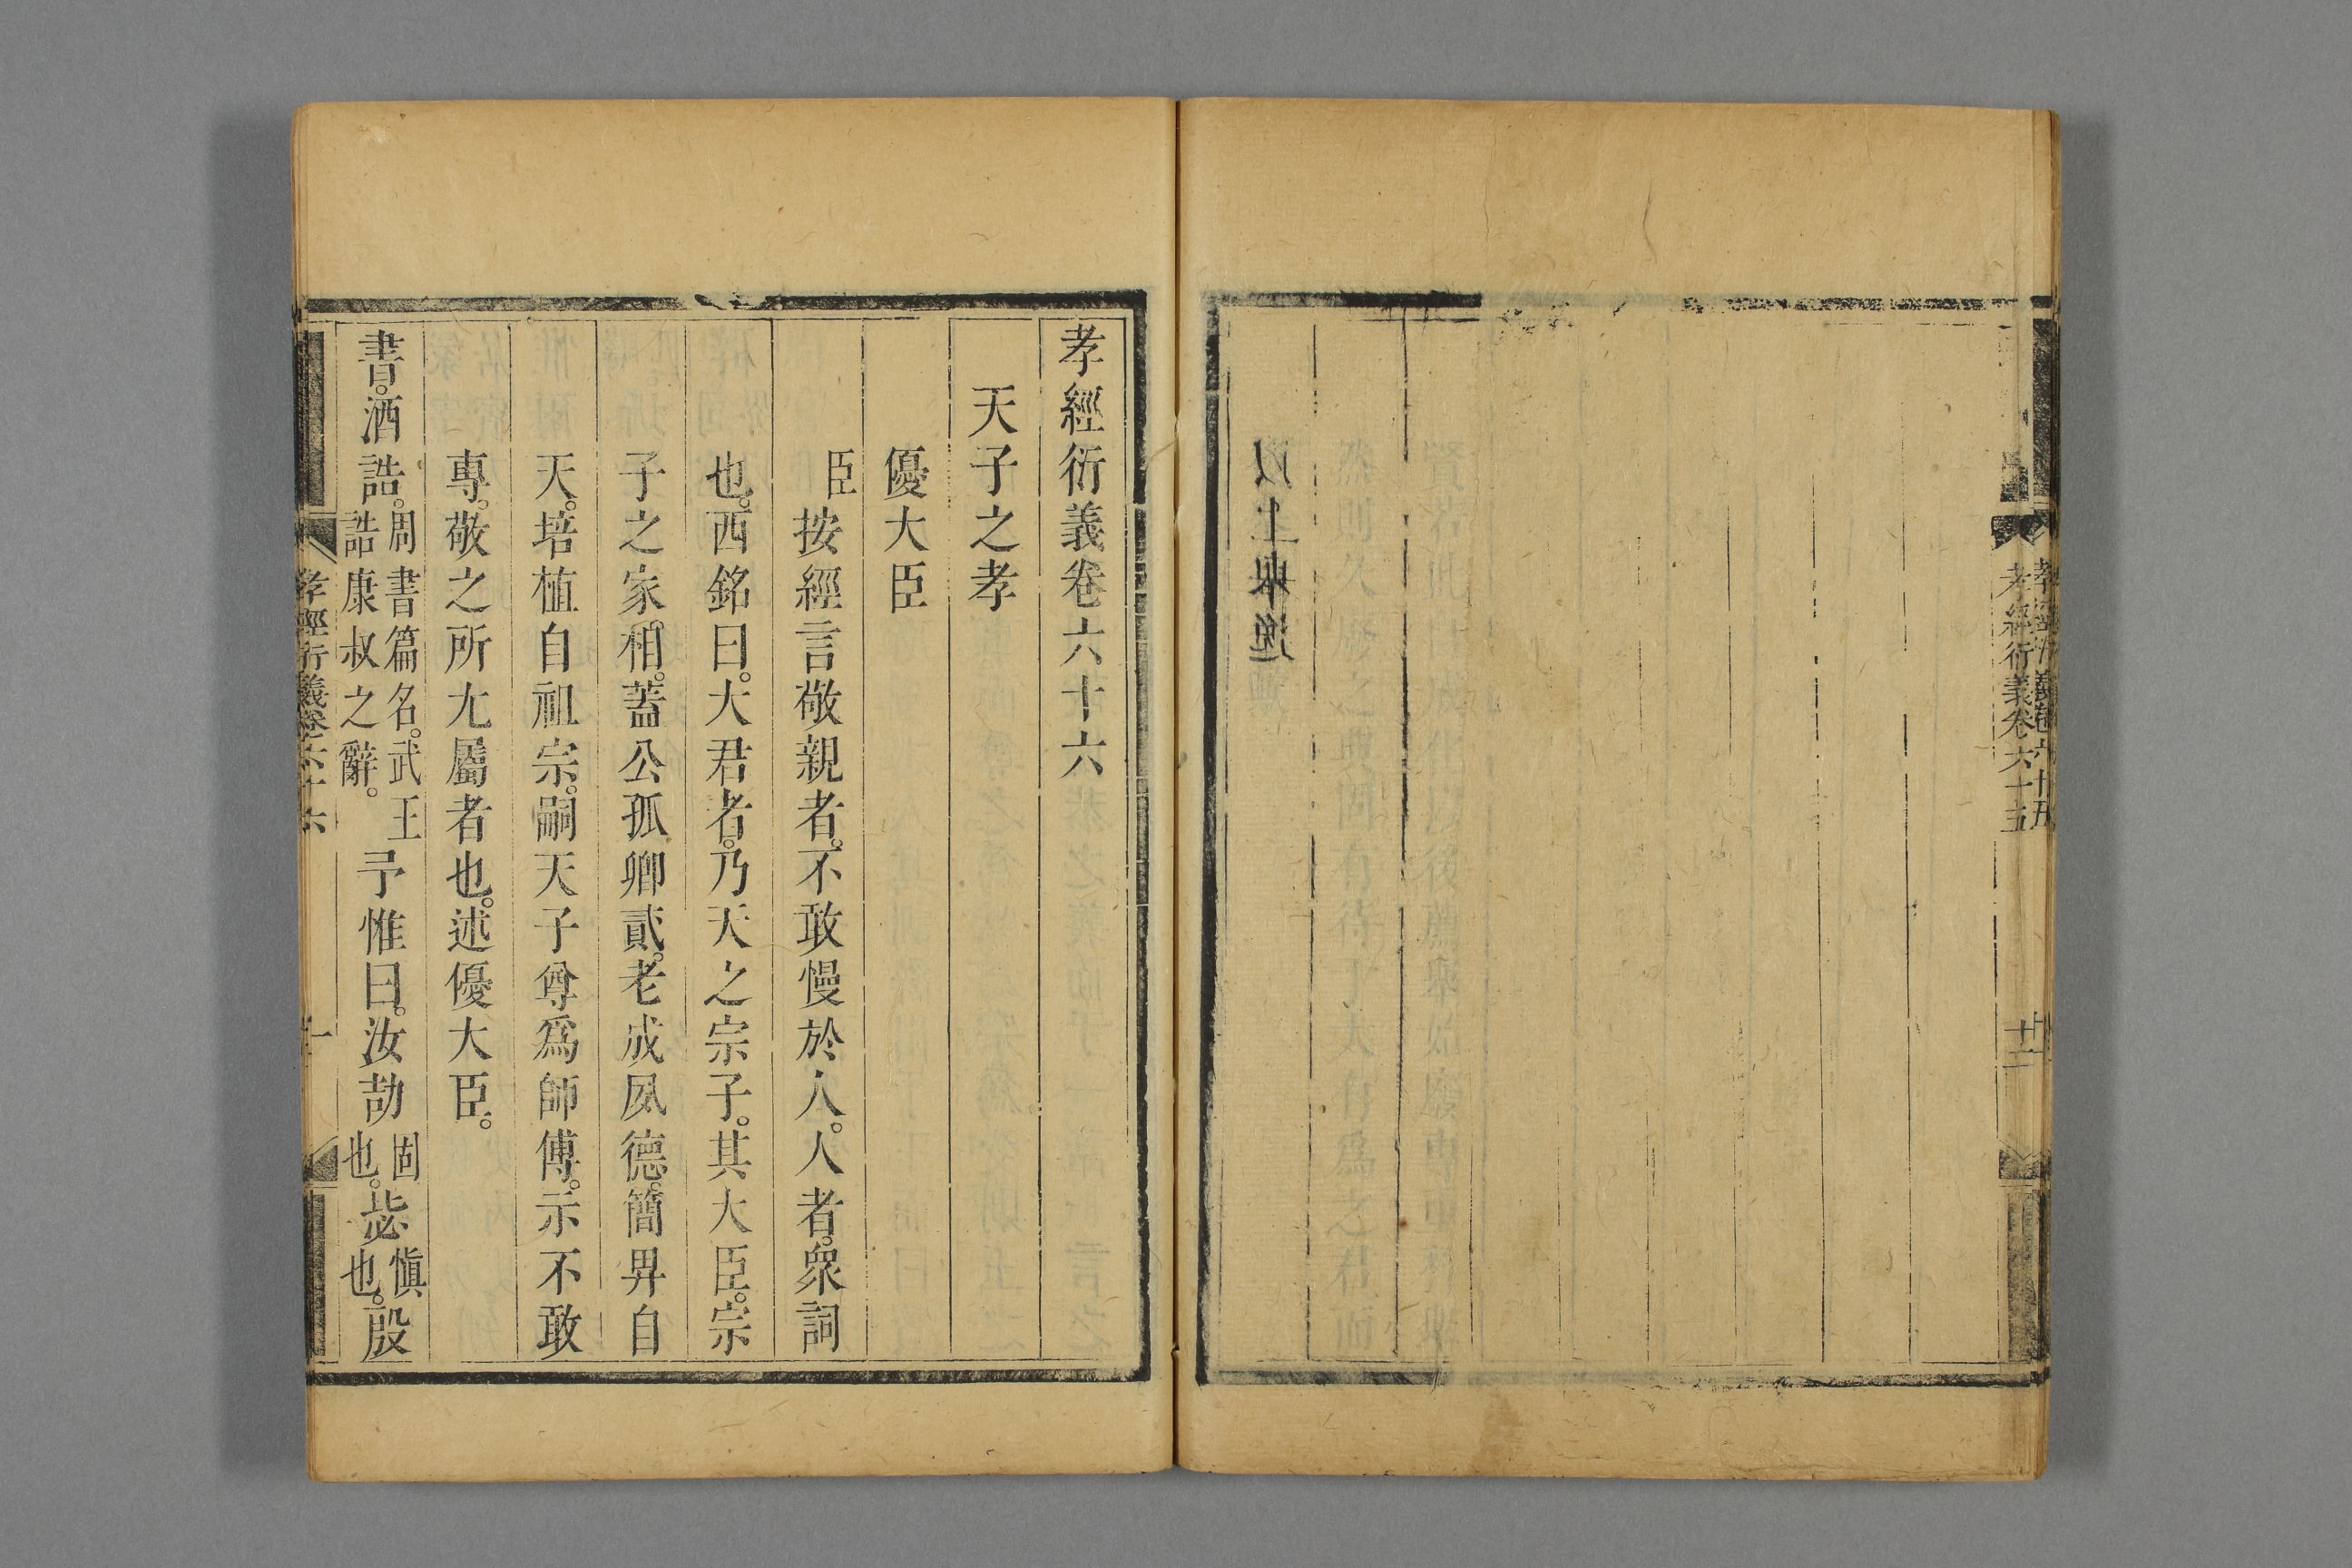 以上舉逸
孝經衍義卷六十五
孝經衍義卷六十六
天子之孝
優大臣
臣按經言敬親者。不敢慢於人。人者。衆詞
也。西銘曰。大君者。乃天之宗子。其大臣。宗
子之家相。蓋公孤卿貳。老成夙德。簡畀自
天。培植自祖宗。嗣天子尊爲師傅。示不敢
專。敬之所尤屬者也。述優大臣。
書。酒誥。周書篇名。武王誥康叔之辭。予惟曰。汝劼固也。毖愼也。殷
孝經衍義卷六十六
一